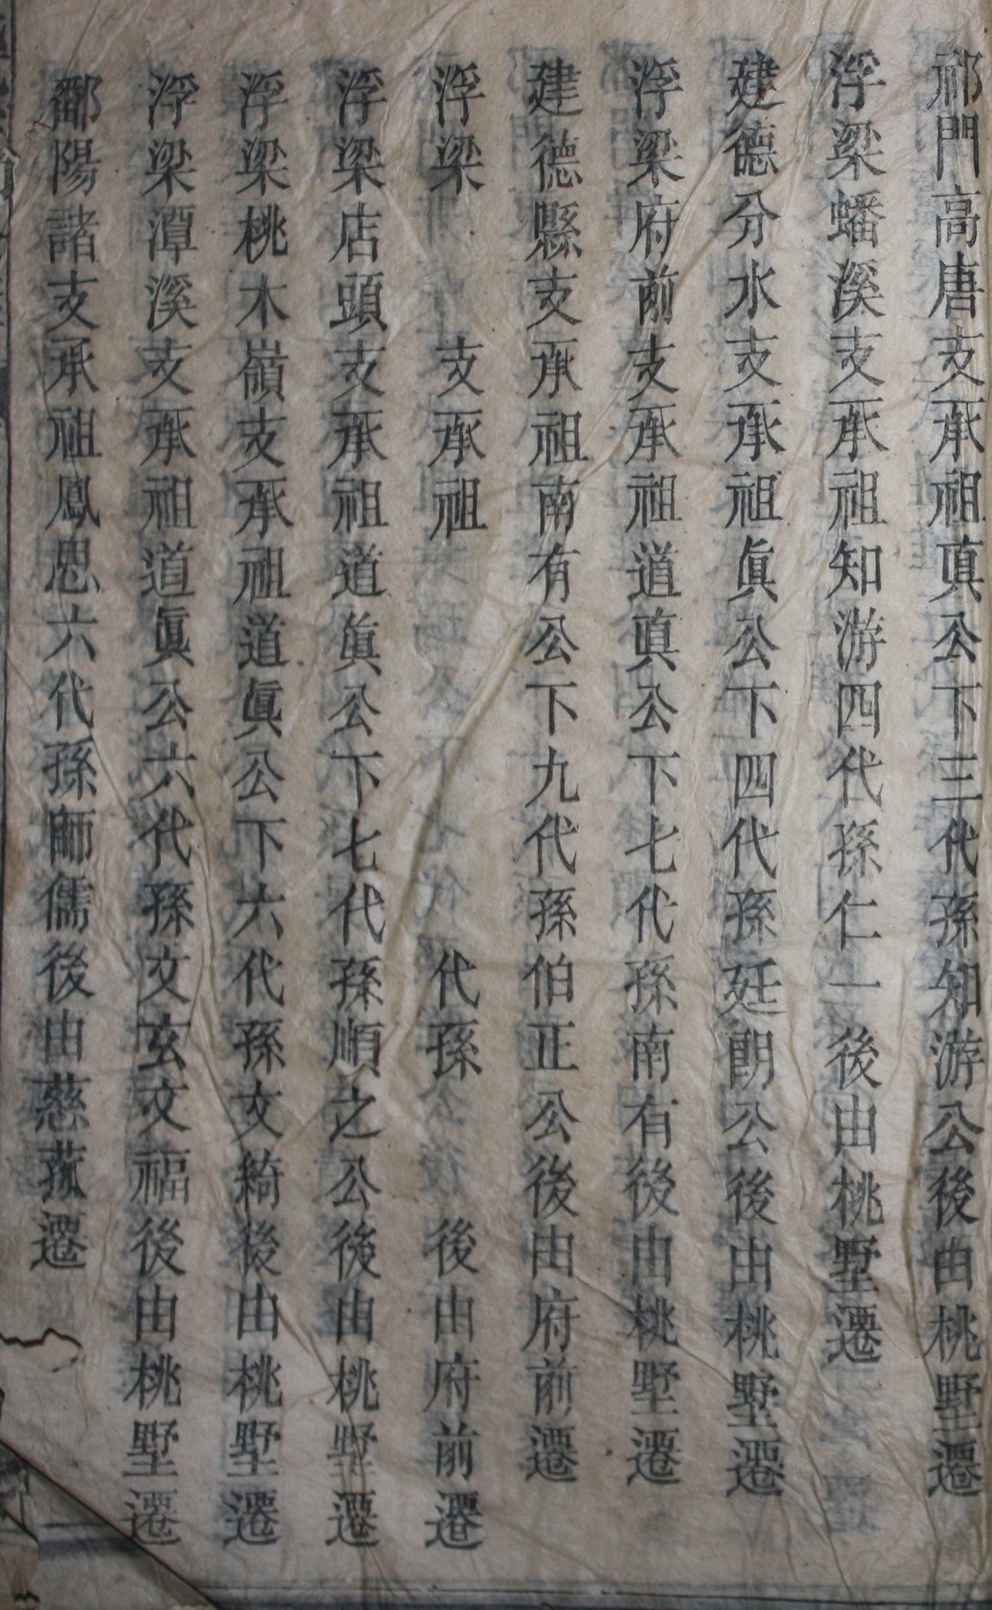 祁門高唐支承祖眞公下三代孫知游公後由桃墅遷
浮梁蟠溪支承祖知游四代孫仁一後由桃墅遷
建德分水支承祖眞公下四代孫廷朗公後由桃墅遷
浮梁府前支承祖道眞公下七代孫南有後由桃墅遷
建德縣支承祖南有公下九代孫伯正公後由府前遷
浮梁　　支承祖　　代孫　　後由府前遷
浮梁店頭支承祖道眞公下七代孫順之公後由桃墅遷
浮梁桃木嶺支承祖道眞公下六代孫文綺後由桃墅遷
浮梁潭溪支承祖道眞公六代孫文玄文福後由桃墅遷
鄱陽諸支承祖鳳思六代孫師儒後由慈菰遷